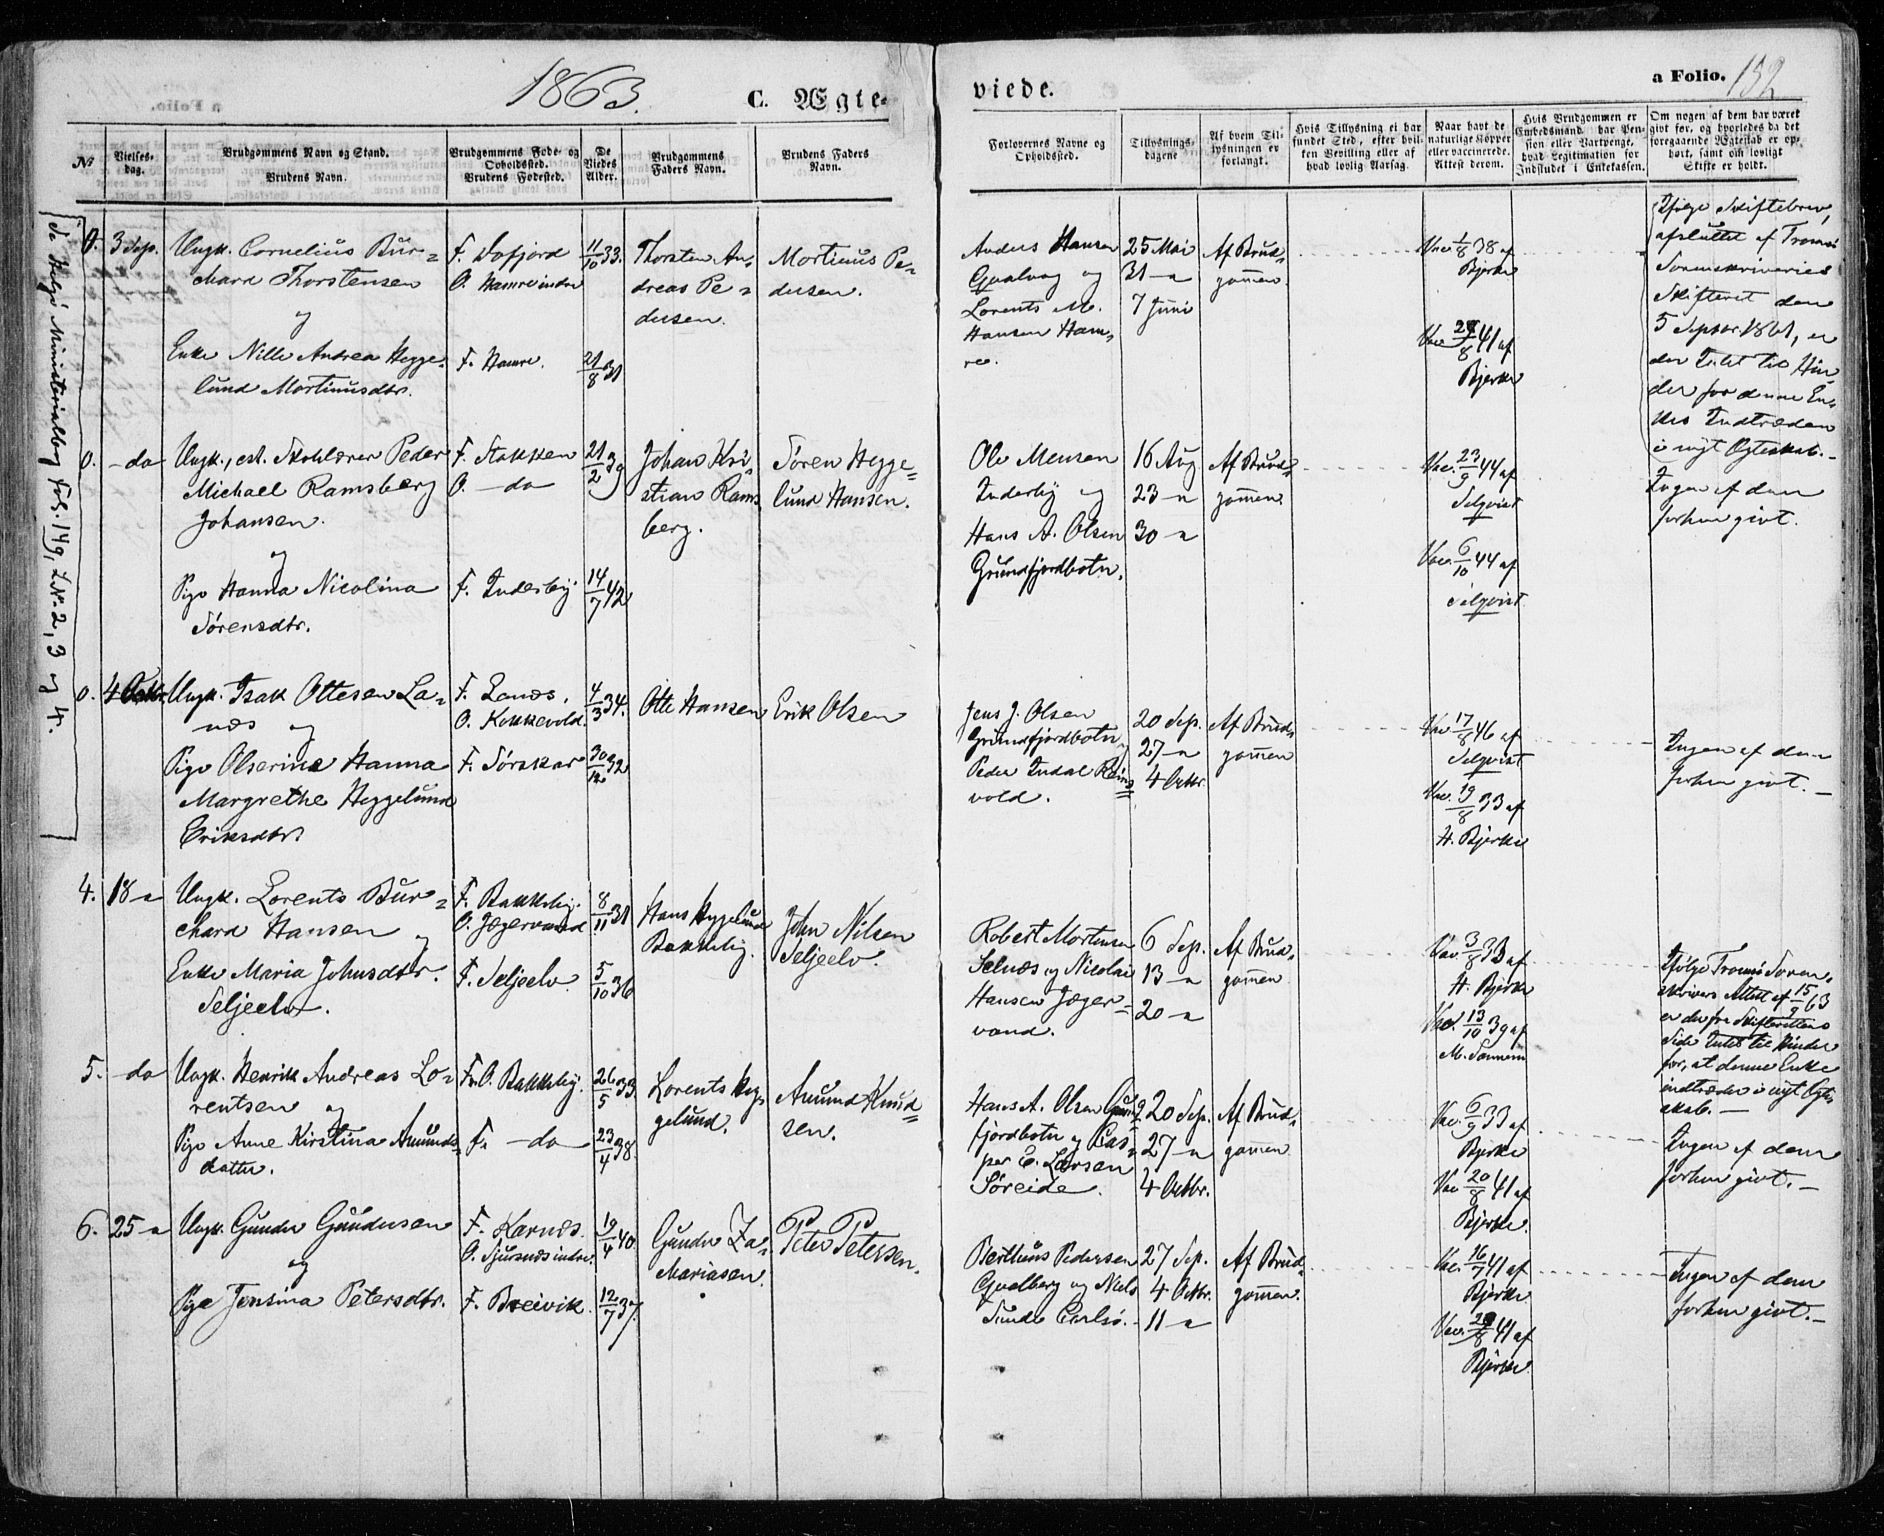 1863.
C. Ægte-
viede.
a Folio. 152
№
Vielses-
dag.
Brudgommens Navn og Stand.
Brudens Navn.
Brudgommens Føde- og
Opholdssted.
Brudens Fødested.
De
Viedes
Alder.
Brudgommens
Faders Navn.
Brudens Faders
Navn.
Forlovernes Navne og
Opholdssted.
Tillysnings-
dagene
Af hvem Til-
lysningen er
forlangt.
Hvis Tillysning ei har
fundet Sted, efter hvil-
ken Bevilling eller af
hvad lovlig Aarsag.
Naar havt de
naturlige Kopper
eller vaccinerede.
Attest derom.
Hvis Brudgommen er
Embedsmand, har Pen-
sion eller Vartpenge,
hvad Legitimation for
Indskudet i Enkekassen.
Om nogen af dem har været
givt før, og hvorledes da det
foregaaende Ægteskab er op-
hørt, samt om lovligt
Skifte er holdt.
Se Helgö Ministerialbog Fol. 149, L.No 2, 3 og 4.
0. 3 Sep.
Ungk. Cornelius Bur=
chard Thorstensen
og
Enke Nille Andrea Hegge-
lund Mortinusdtr.
F. Dafjord
O. Hamre indre
F. Hamre.
11/10 33.
21/8 31
Thorsten An-
dreas Pe=
dersen.
Mortinus Pe-
dersen.
Anders Hansen
Gvalvog og
Lorents M.
Hansen Ham-
re.
25 Mai
31 -"
7 Juni
Af Brud-
gommen
Vac. 1/8 38 af
Bjerke
Vac. 29/8 41 af
Bjerke
Ifølge Skiftebrev,
afsluttet af Tromsö
Sorenskriveries
Skifteret den
5 Septbr. 1861, er
der Intet til Hin-
der for denne En-
kes Indtræden
i nyt Ægteskab. -
0. - do
Ungk., est. Skolelærer Peder
Michael Ramsberg
Johansen.
og
Pige Hanna Nicolina
Sørensdtr.
F. Stakken
O. - do
F. Inderby
21/2 39
14/7 42
Johan Kri-
stian Rams-
berg.
Søren Hegge-
lund Hansen.
Ole Mensen
Inderby og
Hans A. Olsen
Grundfjordbotn.
16 Aug
23 -"
30 -"
Af Brud-
gommen
Vac. 23/9 44 af
Selqvist
Vac. 6/10 44 af
Selqvist
Ingen af dem
forhen givt.
0. 4 Octbr.
Ungk. Isak Ottesen La=
næs og
Pige Olserine Hanna
Margrethe Heggelund
Eriksdtr.
F. Lanæs.
O. Kokkevold.
F. Sørskar
4/3 34.
30/12 32
Otte Hansen
Erik Olsen
Jens J. Olsen
Grundfjordbotn og
Peder Indal Reins=
vold.
20 Sep.
27 -"
4 Octbr.
Af Brud-
gommen
Vac 17/8 46 af
Selqvist
Vac. 19/8 33 af
H. Bjerke
Ingen af dem
forhen givt. -
4. 18 -"
Ungk. Lorents Bur=
chard Hansen og
Enke Maria Johnsdtr.
Seljeelv.
F. Bakkeby.
O. Jægervand.
F. Seljeelv.
8/11 31
5/10 36
Hans Heggelund
Bakkeby.
John Nilsen
Seljeelv.
Robert Mortensen
Selnæs og Nicolai
Hansen Jæger=
vand.
6 Sep.
13 -"
20 -"
Af Brud-
gommen
Vac 3/8 33 af
H. Bjerke
Vac. 13/10 39 af
M. Sannem
Ifølge Tromsö Soren-
skrivers Attest af 15/9 63
er der fra Skifterettens
Side Intet til Hinder
for, at denne Enke
indtræder i nyt Ægte-
skab. -
5. - do
Ungk. Henrik Andreas Lo-
rentsen og
Pige Anne Kirstina Amunds-
datter.
F. O. Bakkeby.
F. - do
26/5 33
23/4 38.
Lorents Heg-
gelund.
Amund Knud=
sen.
Hans A. Olsen Grund-
fjordbotn og Cas-
per E. Larsen
Søreide.
20 Sep.
27 -"
4 Octbr.
Af Brud-
gommen
Vac. 6/9 33 af
Bjerke
Vac 20/8 41 af
Bjerke.
Ingen af dem
forhen givt. -
6. 25 -"
Ungk. Gunder Gundersen
og
Pige Jensina Petersdtr.
F. Karnæs.
O. Sjursnæs indre.
F. Breivik.
19/4 40.
12/7 37.
Gunder Za-
Mariasen.
Peter Petersen.
Berthius Pedersen
Gvalberg og Niels
Sunde Carlsö.
27 Sep.
4 Octbr.
11 -"
Af Brud-
gommen.
Vac. 16/7 41 af
Bjerke.
Vac. 29/8 41 af
Bjerke.
Ingen af dem
forhen givt. -